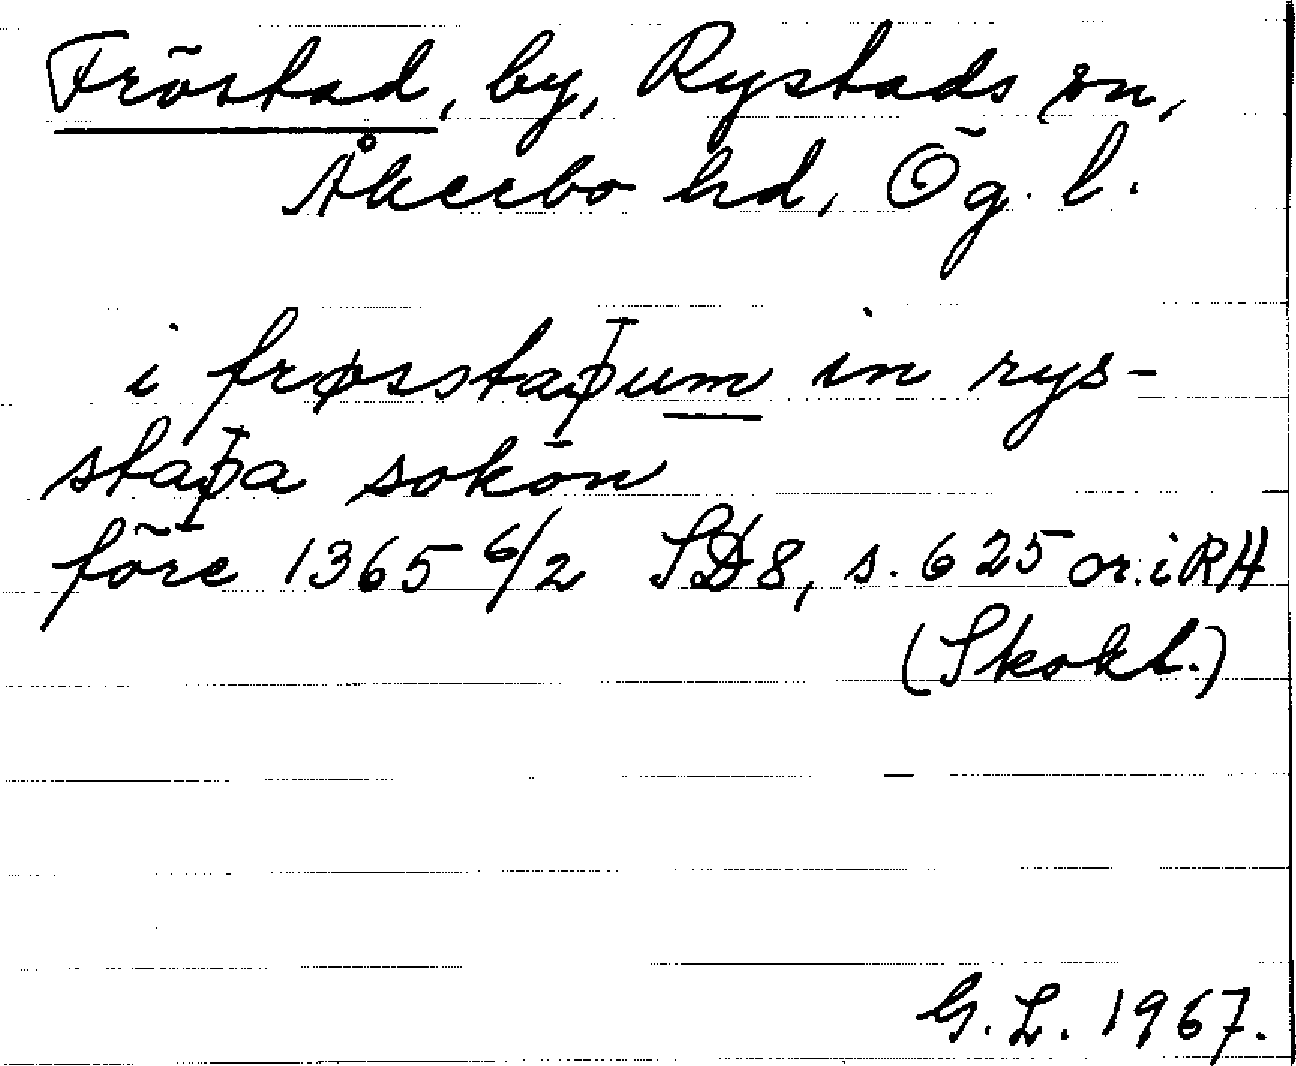 Fröstad, by, Rystads sn,
Åkerbo hd, Ög. l.
i frøsstaþum in rys-
staþa sokon
före 1365 6/2 SD8, s. 625 or. i RA
(Skokl.)
G. L. 1967.